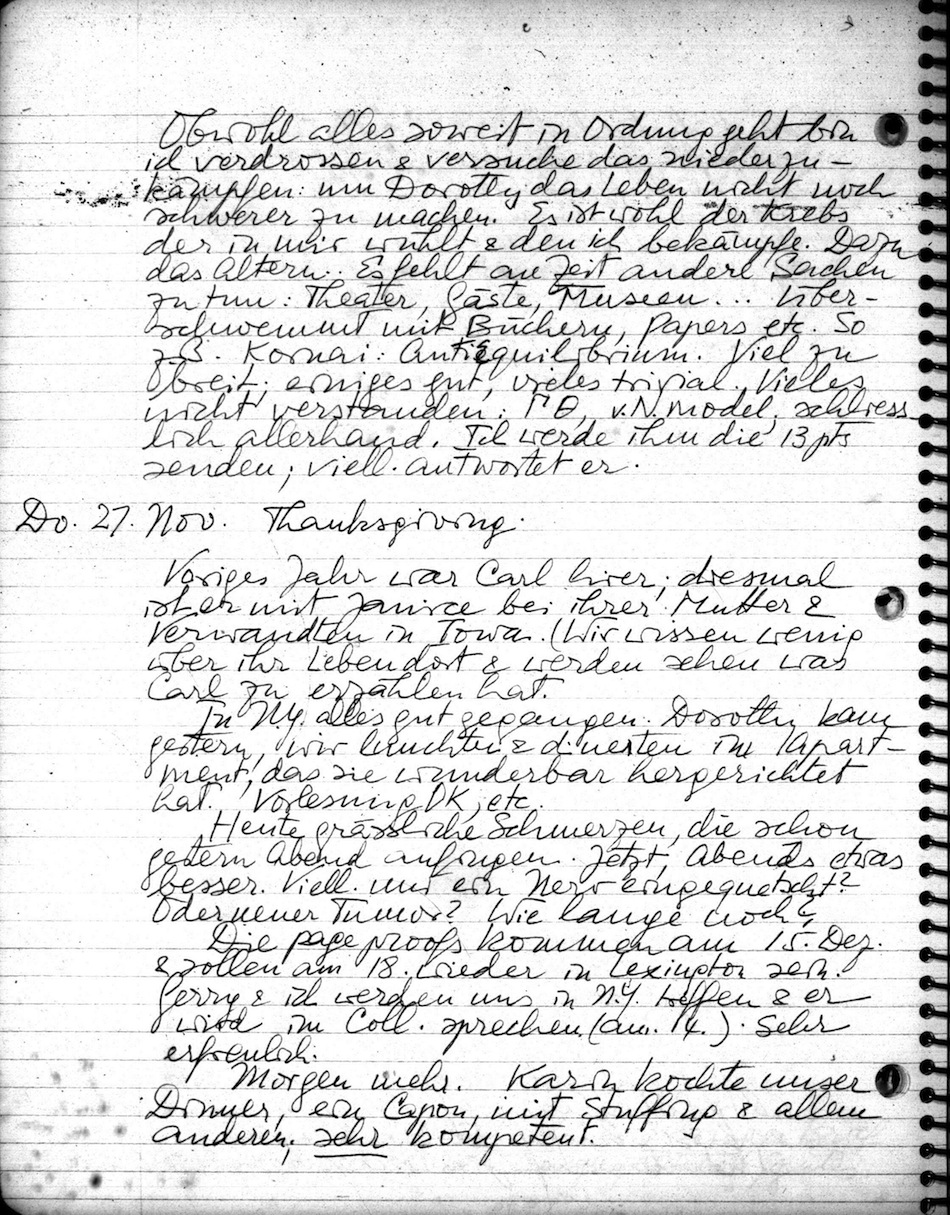 Obwohl alles soweit in Ordnung geht bin
ich verdrossen & versuche das niederzu-
kämpfen: um Dorothy das Leben nicht noch
schwerer zu machen. Es ist wohl der Krebs
der in mir wühlt & den ich bekämpfe. Dazu
das Altern.. Es fehlt an Zeit andere Sachen
zu tun: Theater, Gäste, Museen... Über-
schwemmt mit Büchern, Papers etc. So
z.B. Kornai: Antiequilibrium. Viel zu
breit; einiges gut, vieles trivial. Vieles
nicht verstanden: Γθ, v.N. model, schliess
lich allerhand. Ich werde ihm die 13 pts
senden; viell. antwortet er.
Do. 27. Nov. Thanksgiving.
Voriges Jahr war Carl hier; diesmal
ist er mit Janice bei ihrer Mutter &
Verwandten in Iowa. (Wir wissen wenig
über ihr Leben dort & werden sehen was
Carl zu erzählen hat.
In N.Y. alles gut gegangen. Dorothy kam
gestern, wir lunchten & dinierten im Apart-
ment, das sie wunderbar hergerichtet
hat. Vorlesung OK, etc.
Heute grässliche Schmerzen, die schon
gestern Abend anfingen. Jetzt, Abends etwas
besser. Viell. nur ein Nerv eingequetscht?
Oder neuer Tumor? Wie lange noch?
Die page proofs kommen am 15. Dez.
& sollen am 18. wieder in Lexington sein.
Gerry & ich werden uns in N.Y. treffen & er
wird im Coll. sprechen (am 14.). Sehr
erfreulich.
Morgen mehr. Karin kochte unser
Dinner, ein Capon, mit Stuffing & allem
anderen; sehr kompetent.